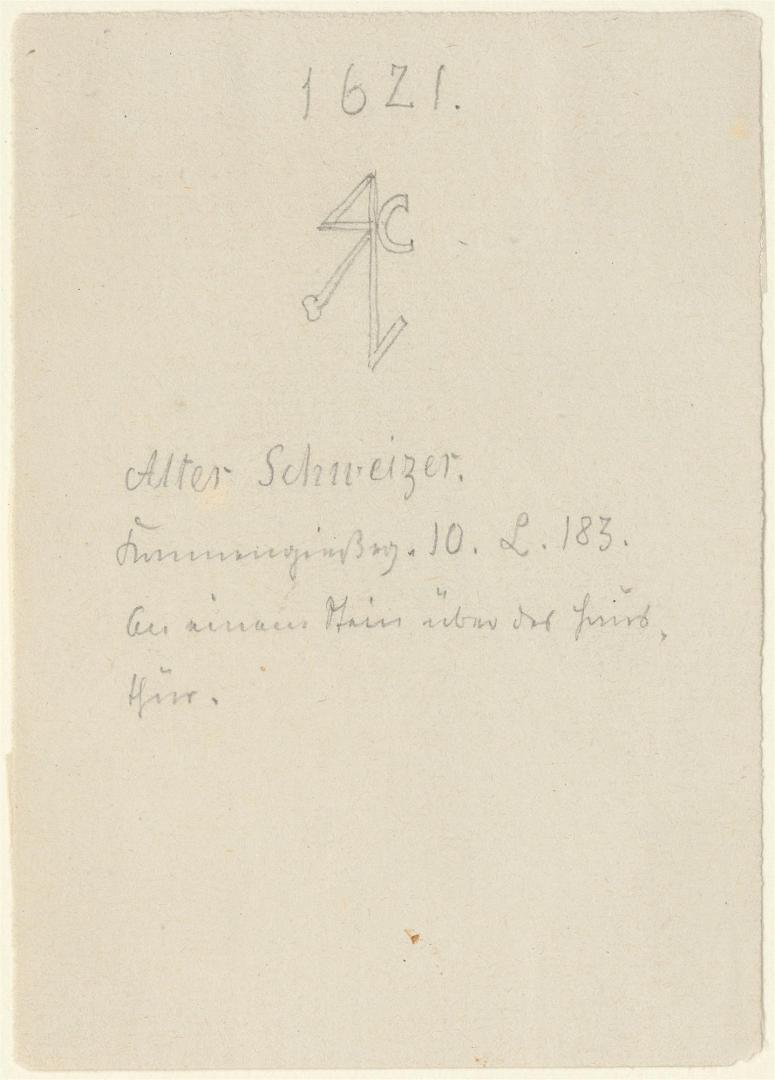 1621.
Alter Schweizer.
Kannengießerg. 10. L. 183.
An einem Stein über der Haus-
thür.